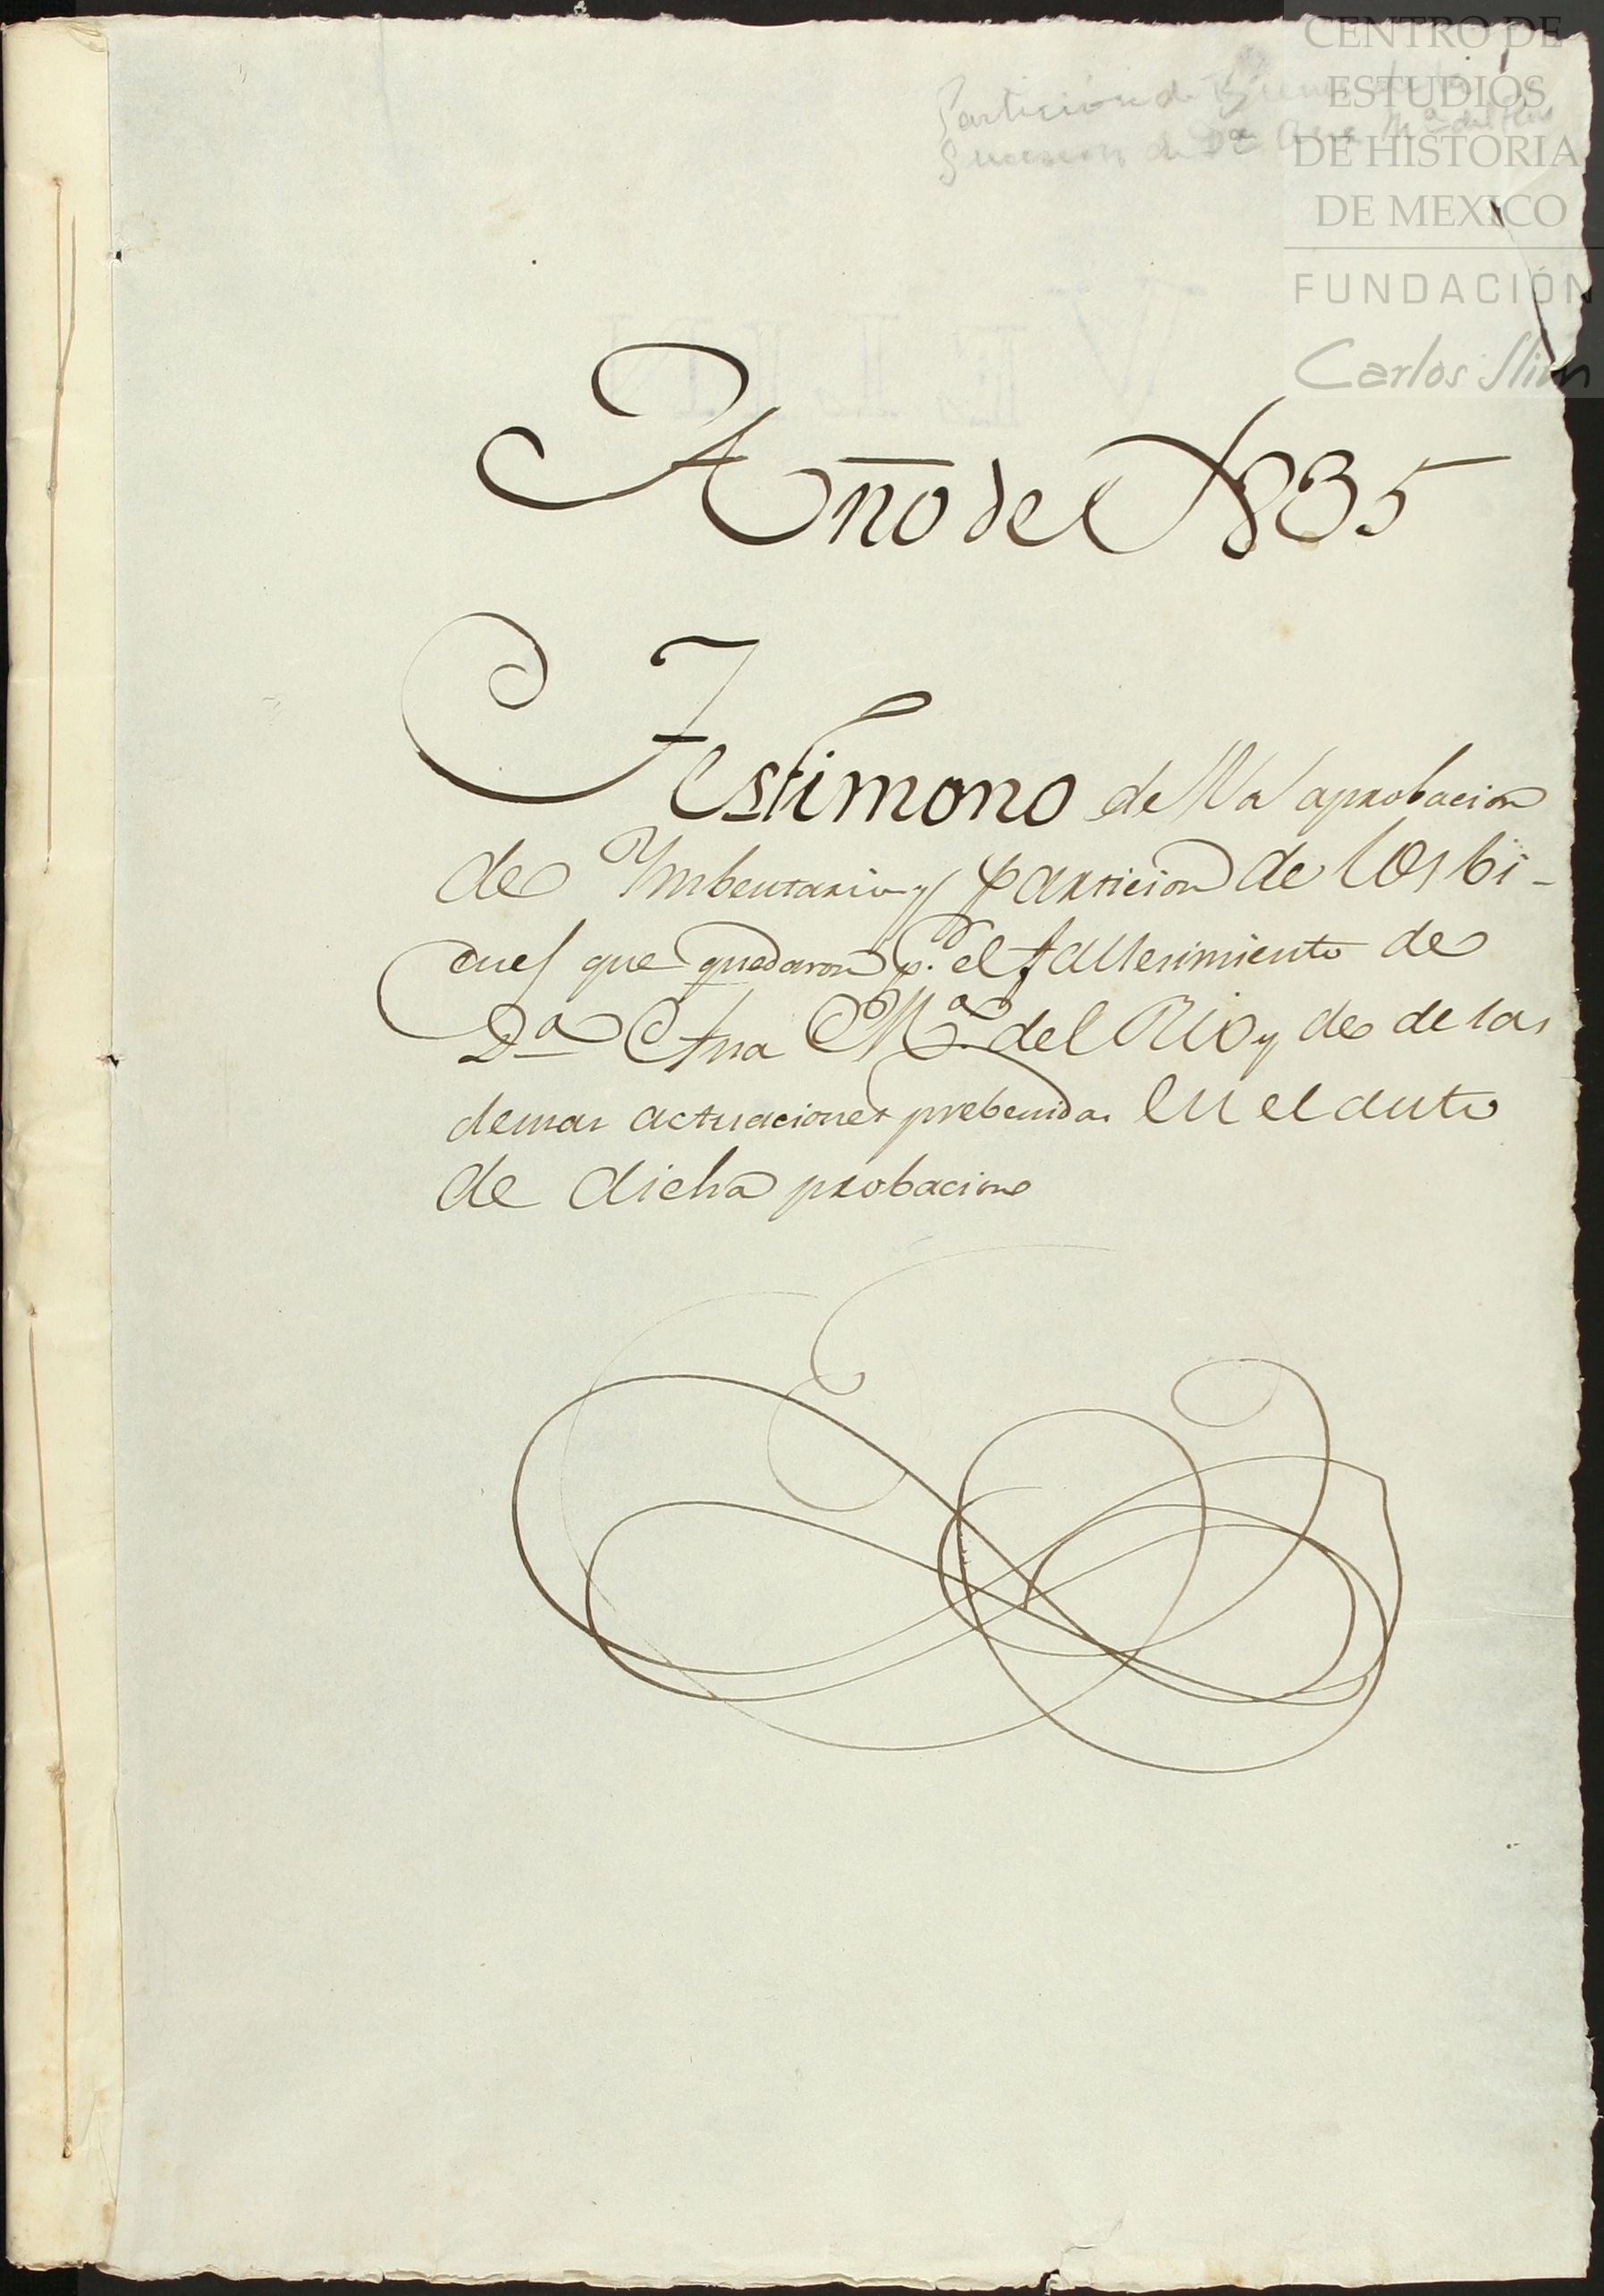 CENTRO DE
ESTUDIOS
DE HISTORIA
DE MEXICO
FUNDACIÓN
Carlos Slim
Particion de Bienes de la
Sucesion de Dª Ana Mª del Rio
Año de 1835
Testimono de la aprobacion
de Imbentario y particion de los bi-
enes que quedaron pr. el fallesimiento de
Dª Ana Mª. del Rio y de de las
demas actuaciones prebenidas en el auto
de dicha probacion